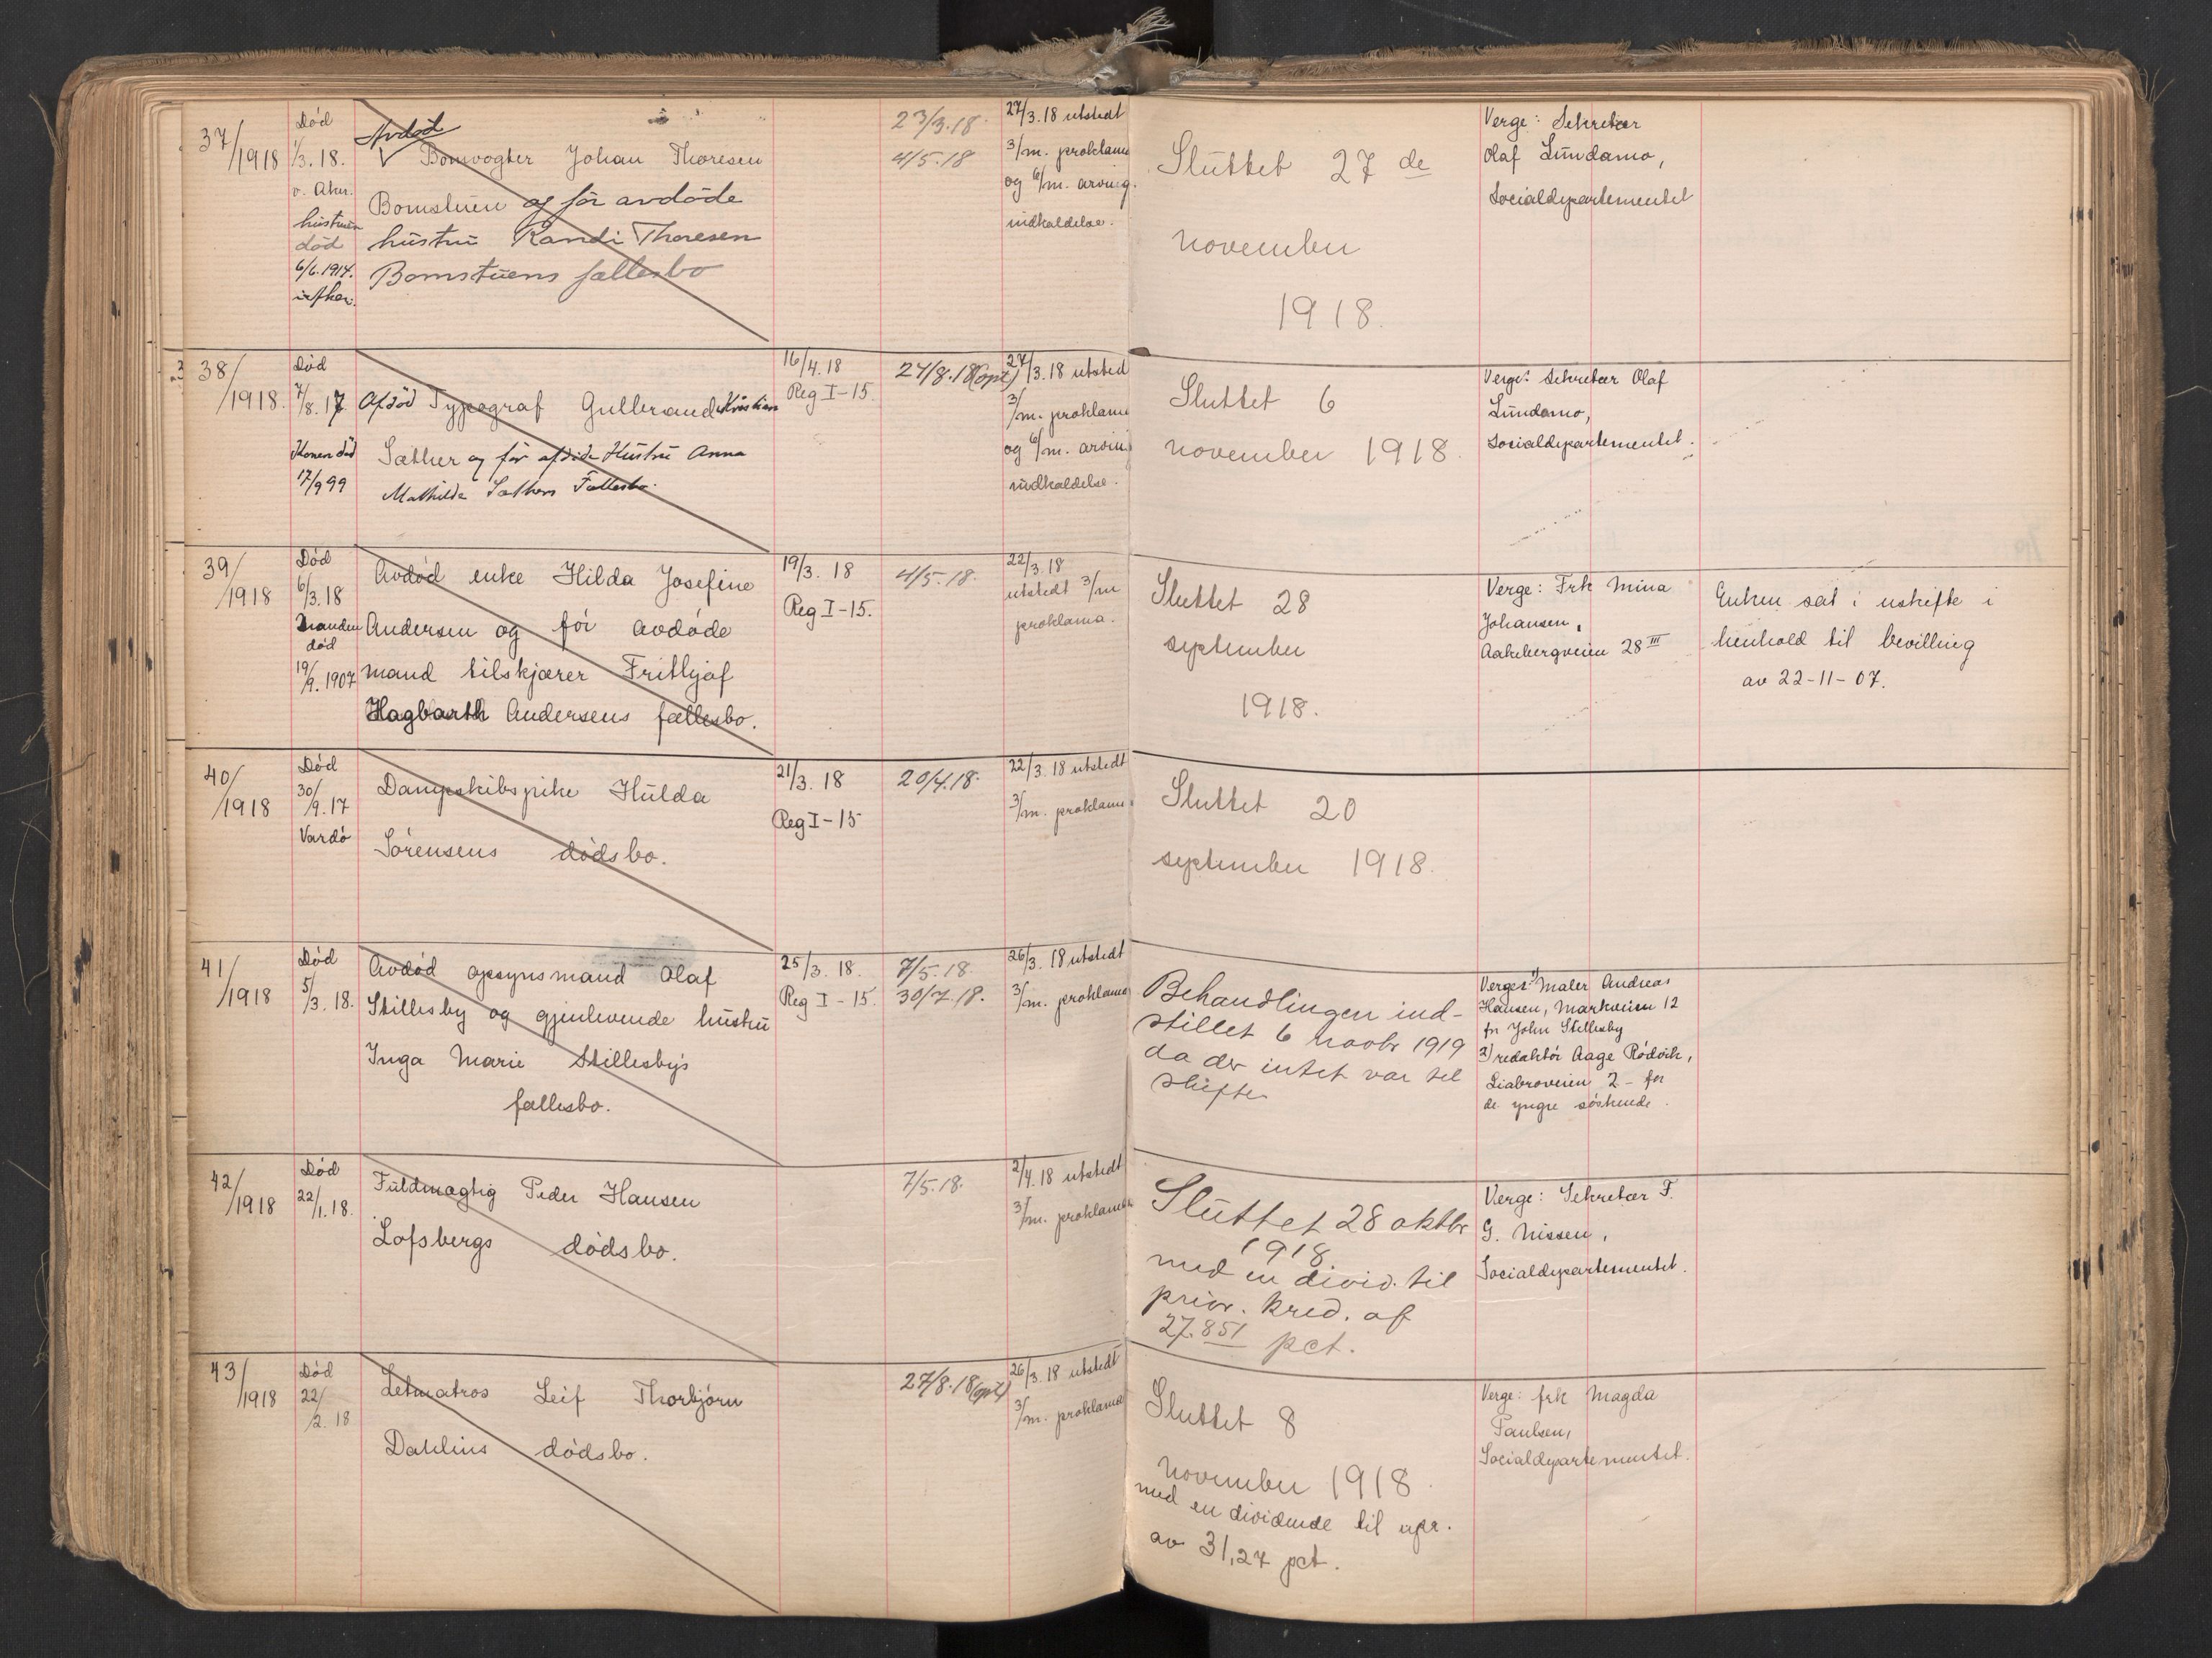 37/1918
Død
1/3.18.
v. Aker.
hustruen
død
6/6.1914.
Avdød
Bomvogter Johan Thoresen
Bomstuen og før avdøde
hustru Randi Thoresen
Bomstuens fællesbo
23/3.18.
4/5.18
27/3.18 utstedt
3/m. proklama
og 6/m. arving.
indkaldelse.
Sluttet 27de
november
1918.
Verge: Sekretær
Olaf Lundamo,
Socialdepartementet
38/1918.
Død
7/8.17
Konen død
17/9 99
Afdød Typograf Gulbrand Kristian
Sæther og før afdøde Hustru Anna
Mathilde Sæthers Fællesbo.
16/4.18
Reg I-15.
24/8.18 (opt)
27/3.18 utsted
3/m. proklama
og 6/m. arvin
indkaldelse.
Sluttet 6
november 1918.
Verge: Sekretær Olaf
Lundamo,
Socialdepartementet.
39/1918
Død
6/3.18
Manden
død
19/9.1907
Avdød enke Hilda Josefine
Andersen og før avdøde
mand tilskjærer Frithjof
Hagbarth Andersens fællesbo.
19/3.18
Reg I-15.
4/5.18.
22/3.18
utstedt 3/m
proklama.
Sluttet 28
september
1918.
Verge: Frk Mina
Johansen,
Aakebergveien 28 III
Enken sat i uskifte i
henhold til bevilling
av 22-11-07.
40/1918
Død
30/9.17
Vardø
Dampskibspike Hulda
Sørensens dødsbo.
21/3.18
Reg I-15
20/4.18.
22/3.18 utstedt
3/m. proklama
Sluttet 20
september 1918.
41/1918
Død
5/3.18.
Avdød opsynsmand Olaf
Stillesby og gjenlevende hustru
Inga Marie Stillesby's
fællesbo.
25/3.18.
Reg I-15.
7/5.18.
30/7.18.
26/3.18 utstedt
3/m. proklama
Behandlingen ind-
stillet 6 novbr 1919
da der intet var til
skifte
Verger: 1) Maler Andreas
Hansen, Markveien 12
for John Stillesby
2) redaktør Aage Rødvik,
Liabroveien 2 - for
de yngre søskende.
42/1918
Død
22/1.18.
Fuldmægtig Peder Hansen
Lofsbergs dødsbo.
7/5.18.
2/4.18 utstedt
3/m. proklama
Sluttet 28 oktbr
1918.
med en divid. til
prior. kred. af
27.851 pct.
Verge: Sekretær F.
G. Nissen,
Socialdepartementet.
43/1918
Død
22/2.18
Letmatros Leif Thorbjørn
Dahlins dødsbo.
27/8.18 (opt)
26/3.18 utstedt
3/m. proklama
Sluttet 8
november 1918.
med en dividende til upr.
av 31,27 pct.
Verge: frk Magda
Paulsen,
Socialdepartementet.